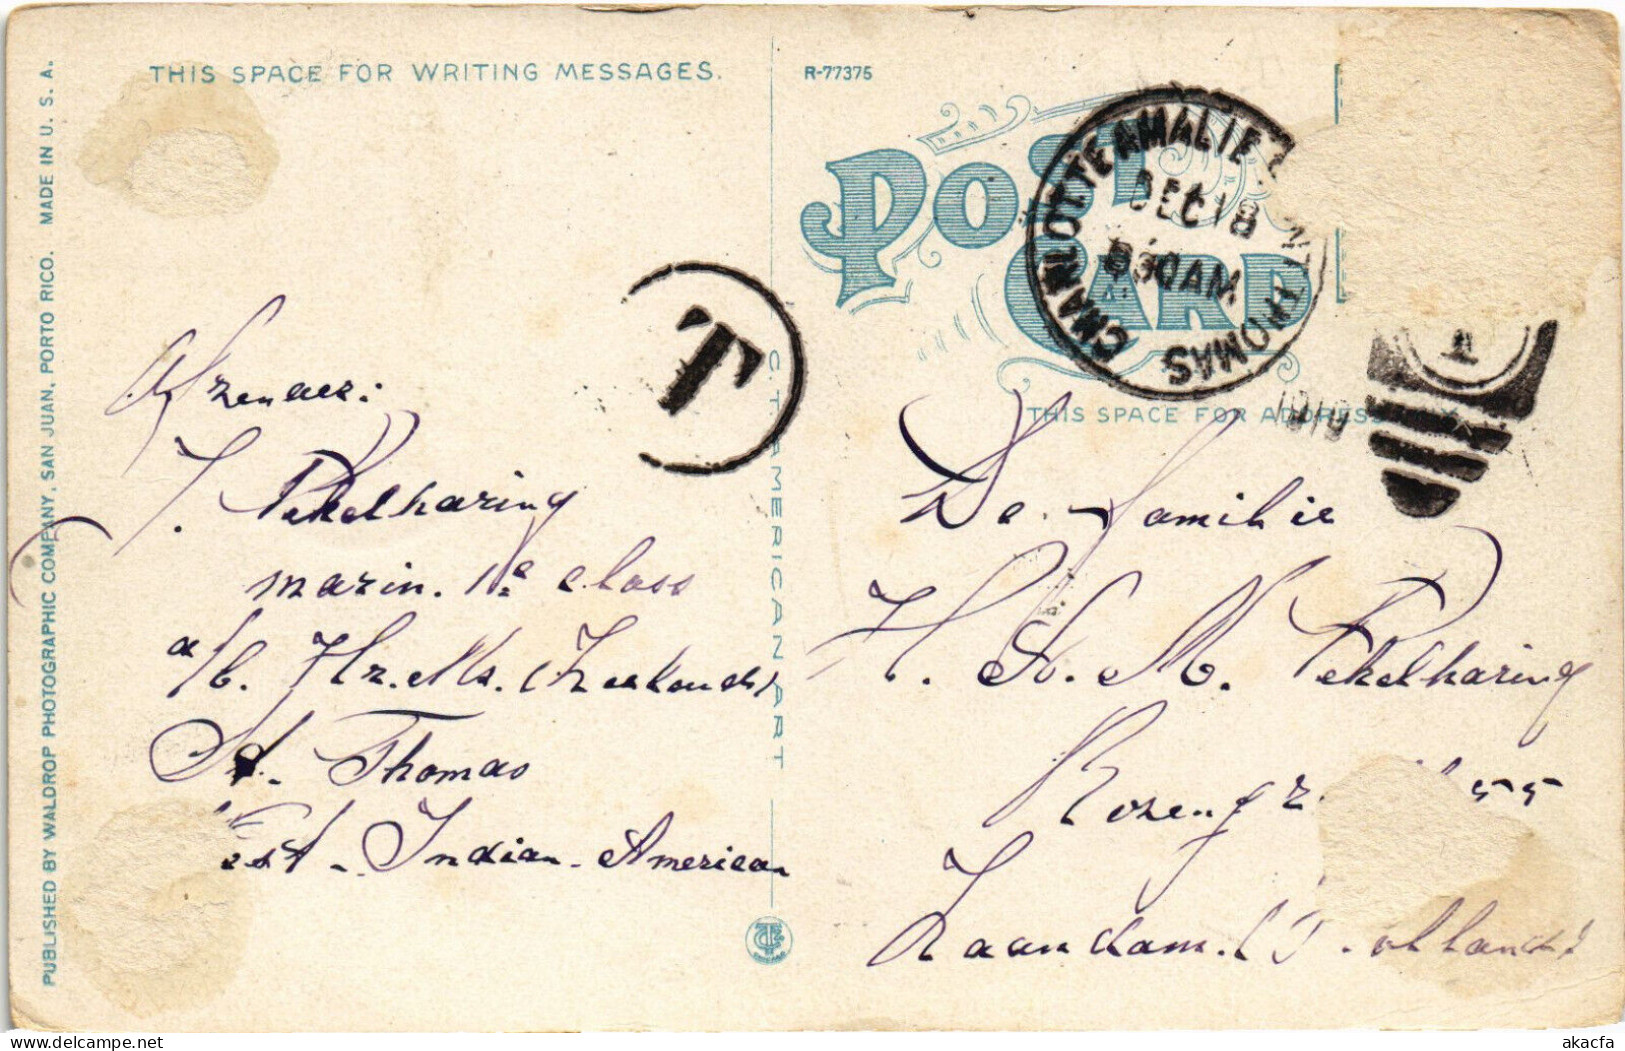 THIS SPACE FOR WRITING MESSAGES.
R-77375
POST CARD
CHARLOTTE AMALIE
DEC 18
830AM
ST THOMAS
1919
1
THIS SPACE FOR ADDRESS
PUBLISHED BY WALDROP PHOTOGRAPHIC COMPANY, SAN JUAN, PORTO RICO. MADE IN U. S. A.
C. T. AMERICAN ART
T
Afzender:
J. Pekelharing
marin. 1e class
a/b. Hr. Ms. (Zeeland)
St. Thomas
West-Indian-American
De Familie
H. St. M. Pekelharing
55
Zaandam. Holland
akacfa